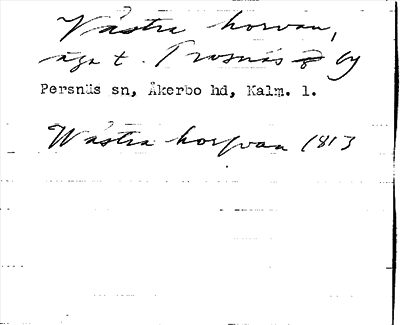 Västra horvan,
äga t. Prosnäs by
Persnäs sn, Åkerbo hd, Kalm. l.
Wästra horfvan 1813